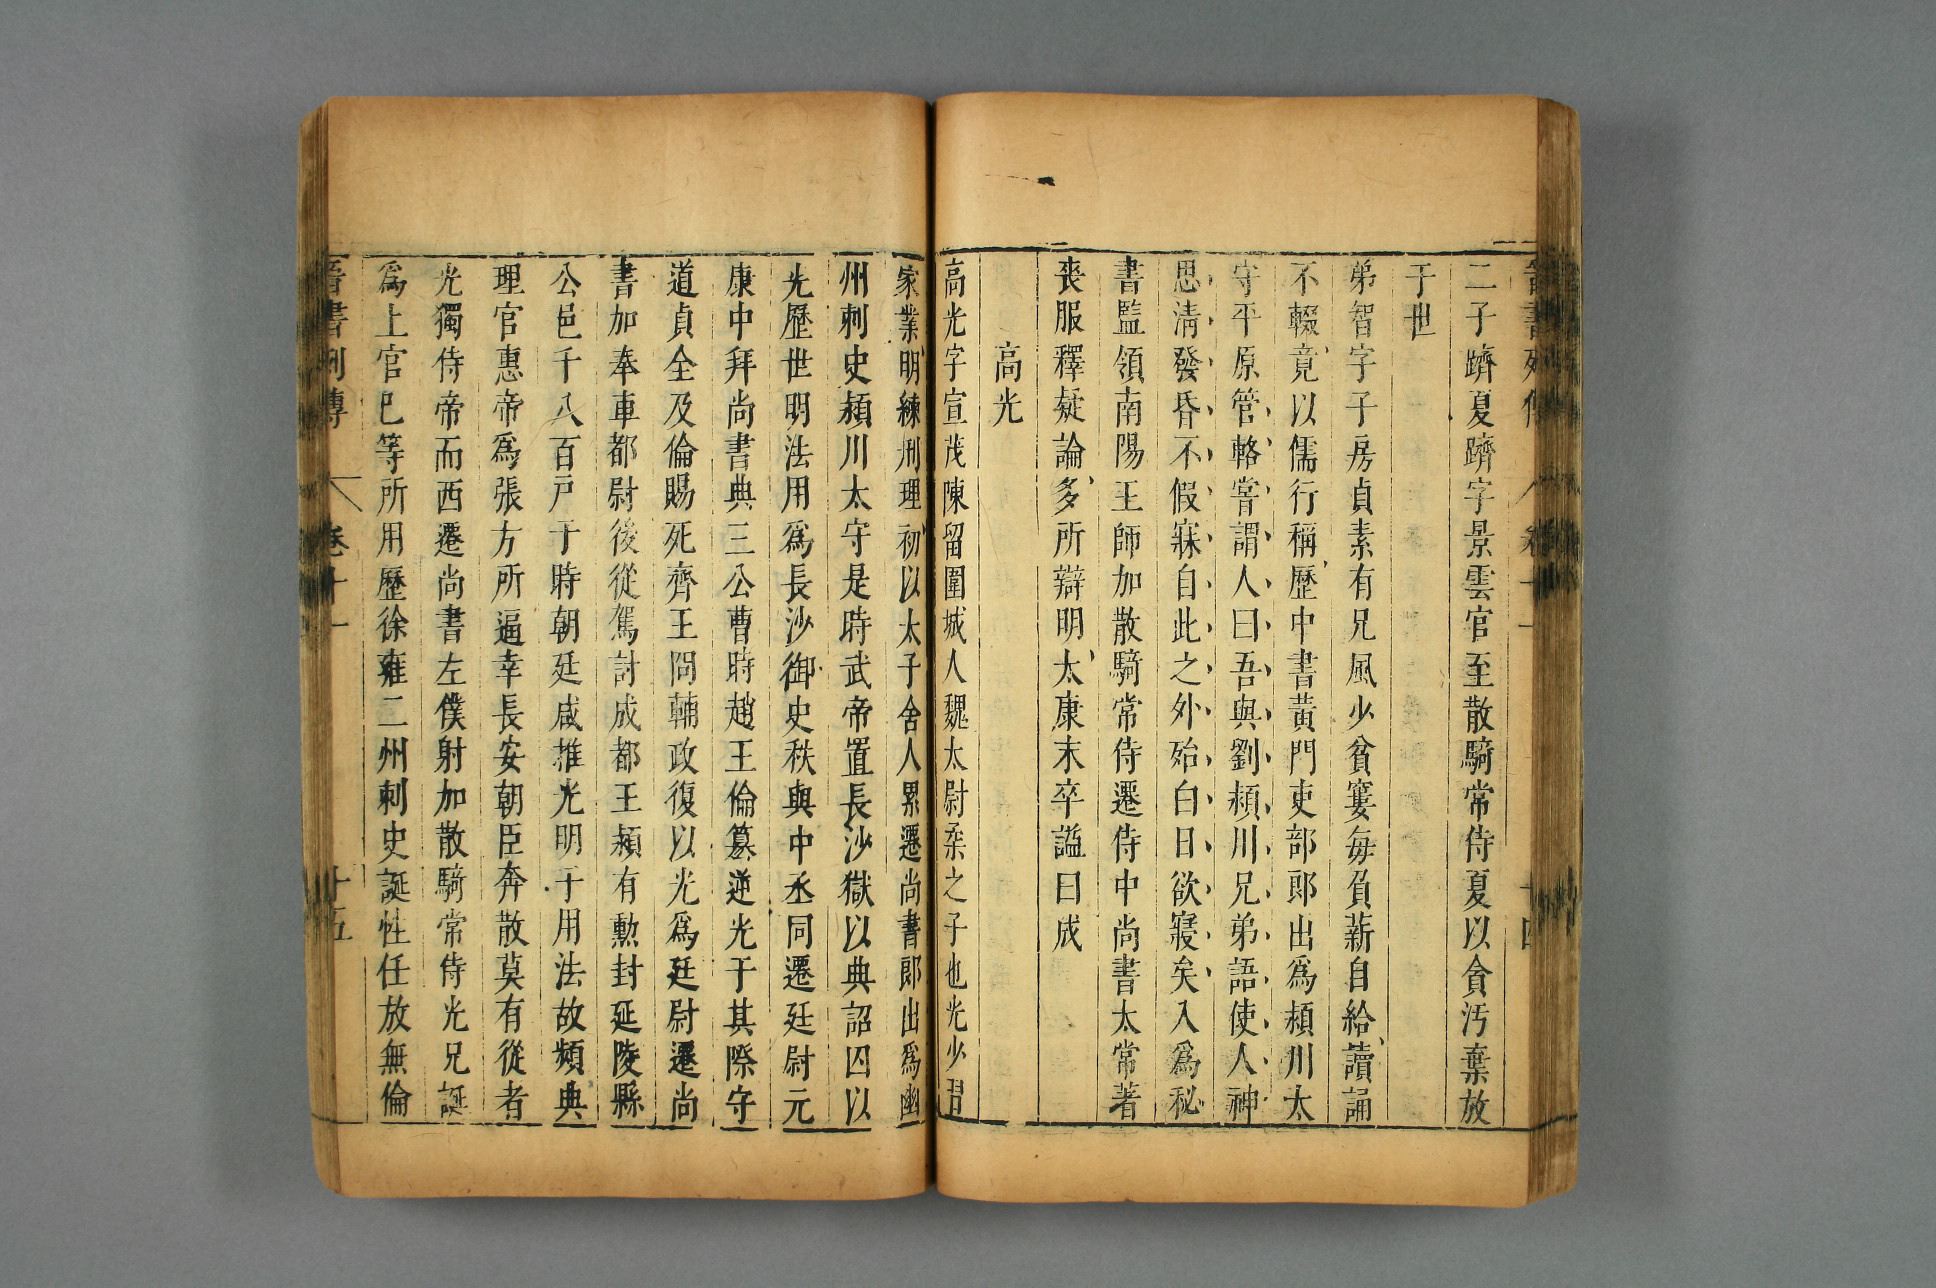 晉書列傳 卷十一 十四
二子躋夏躋字景雲官至散騎常侍夏以貪汚棄放
于世
弟智字子房貞素有兄風少貧窶每負薪自給讀誦
不輟竟以儒行稱歷中書黃門吏部郎出爲潁川太
守平原管輅嘗謂人曰吾與劉潁川兄弟語使人神
思淸發昏不假寐自此之外殆白日欲寢矣入爲秘
書監領南陽王師加散騎常侍遷侍中尚書太常著
喪服釋疑論多所辯明太康末卒謚曰成
高光
高光字宣茂陳留圉城人魏太尉柔之子也光少習
家業明練刑理初以太子舍人累遷尚書郎出爲幽
州刺史潁川太守是時武帝置長沙獄以典詔囚以
光歷世明法用爲長沙御史秩與中丞同遷廷尉元
康中拜尚書典三公曹時趙王倫簒逆光于其際守
道貞全及倫賜死齊王冏輔政復以光爲廷尉遷尚
書加奉車都尉後從駕討成都王潁有勲封延陵縣
公邑千八百戸于時朝廷咸推光明于用法故頻典
理官惠帝爲張方所逼幸長安朝臣奔散莫有從者
光獨侍帝而西遷尚書左僕射加散騎常侍光兄誕
爲上官巳等所用歷徐雍二州刺史誕性任放無倫
晉書列傳 卷十一 十五